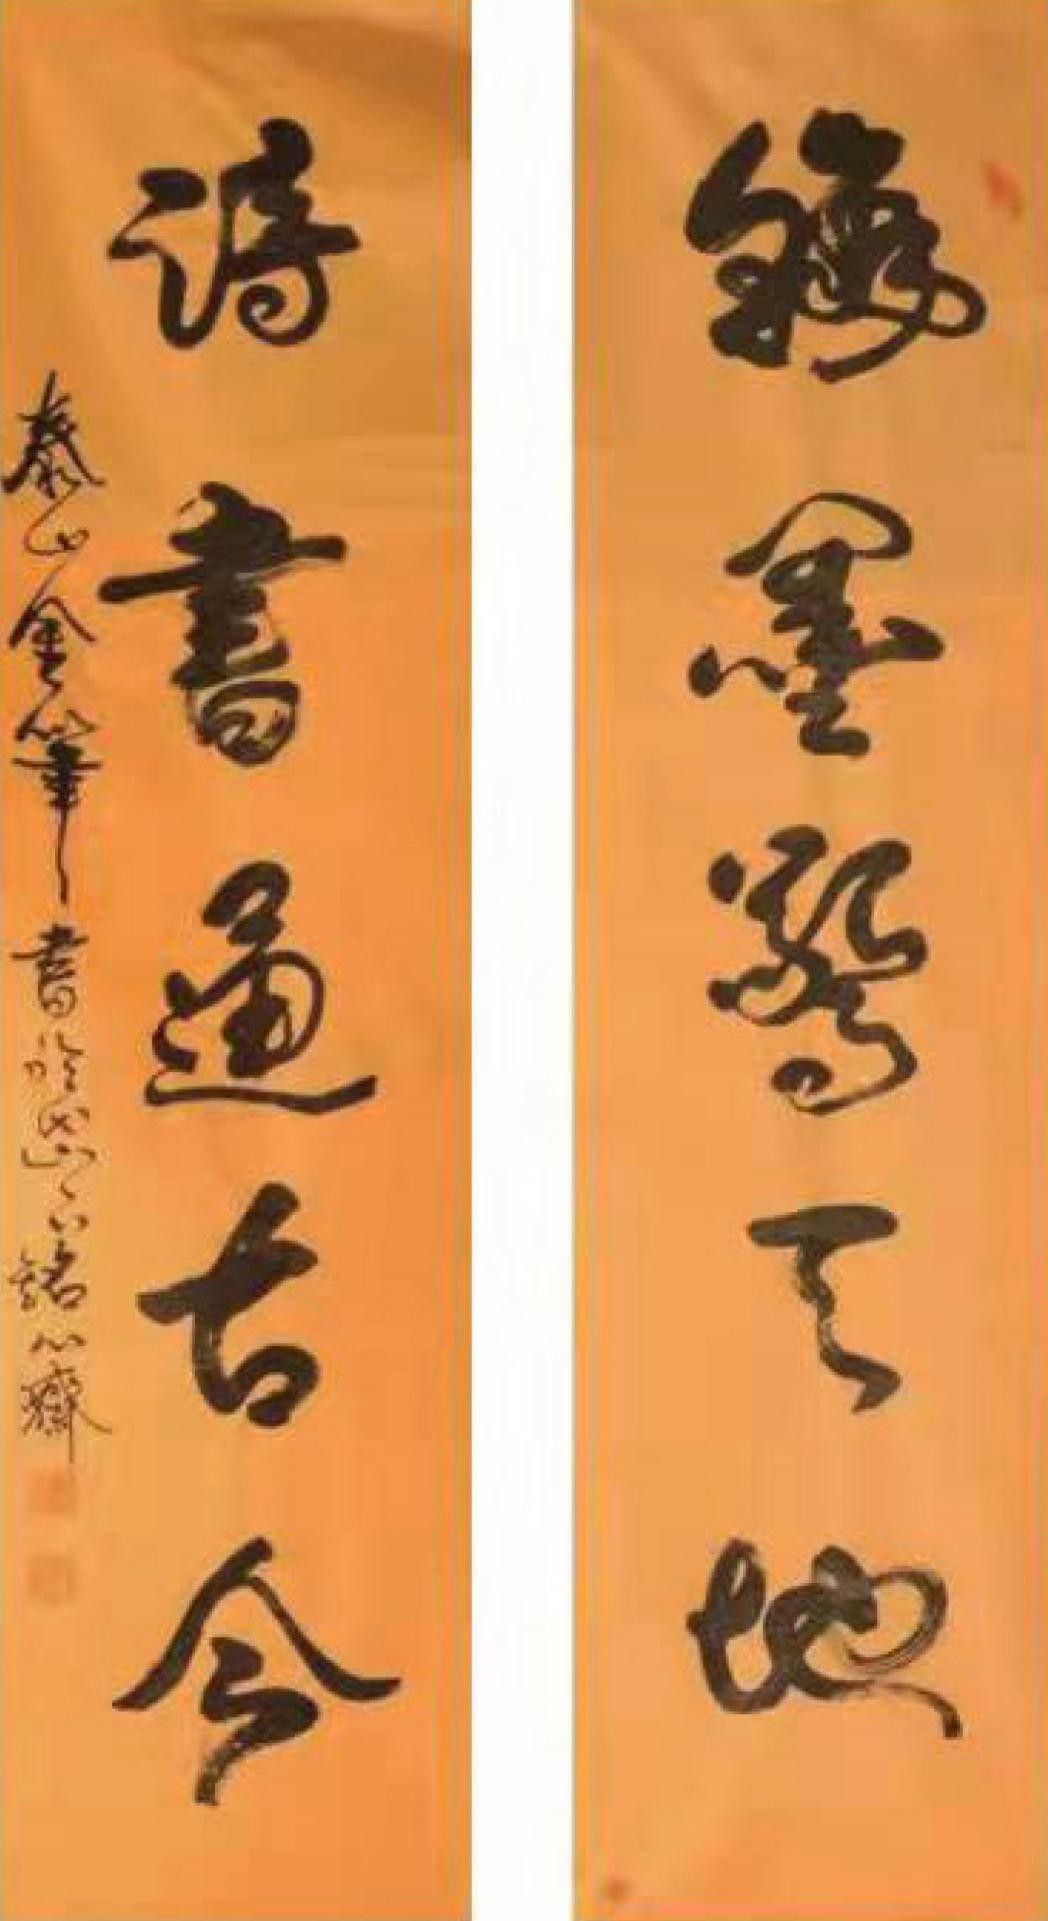 墨驚天地
詩書通古今
泰山金筆書於岱下銘心齋